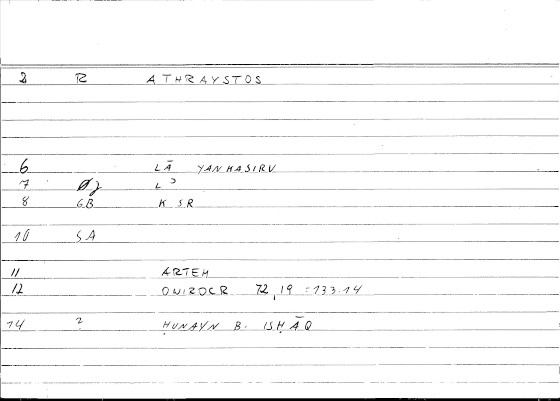 2 R ATHRAYSTOS
6 LĀ YANKASIRU
7 L ʾ
8 GB K SR
10 SA
11 ARTEM
12 ONIROCR 72,19 = 133.14
14 2 ḤUNAYN B. ISḤĀQ